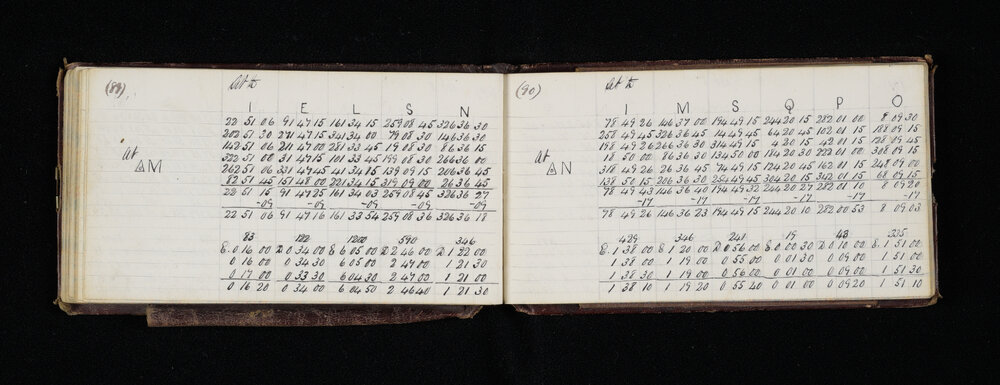 (89)
At
I E L S N
22 51 06 91 47 15 161 34 15 259 08 45 326 36 30
202 51 30 271 47 15 341 34 00 79 08 30 146 36 30
142 51 06 211 47 00 281 33 45 19 08 30 86 36 15
322 51 00 31 47 15 101 33 45 199 08 30 266 36 00
262 51 06 331 49 45 41 34 15 139 09 15 206 36 45
82 51 45 151 48 00 221 34 15 319 09 00 26 36 45
22 51 15 91 47 25 161 34 03 259 08 45 326 36 27
-09 -09 -09 -09 -09
22 51 06 91 47 16 161 33 54 259 08 36 326 36 18
at
M
83 122 1200 590 346
E. 0 16 00 D 0 34 00 E 6 05 00 D 2 46 00 D 1 22 00
0 16 00 0 34 30 6 05 00 2 47 00 1 21 30
0 17 00 0 33 30 6 04 30 2 47 00 1 21 00
0 16 20 0 34 00 6 04 50 2 46 40 1 21 30
(90)
At
I M S Q P O
78 49 26 146 37 00 194 49 15 244 20 15 282 01 00 8 09 30
258 49 45 326 36 45 14 49 45 64 20 45 102 01 15 188 09 15
198 49 26 266 36 30 314 49 15 4 20 15 42 01 15 128 09 45
18 50 00 86 36 30 134 50 00 184 20 30 222 01 00 308 09 15
318 49 26 26 36 45 74 49 15 124 20 45 162 01 15 248 09 00
138 50 15 206 36 30 254 49 45 304 20 15 342 01 15 68 09 15
78 49 43 146 36 40 194 49 32 244 20 27 282 01 10 8 09 20
-17 -17 -17 -17 -17 -17
78 49 26 146 36 23 194 49 15 244 20 10 282 00 53 8 09 03
at
N
429 346 241 19 48 335
E. 1 38 00 E 1 20 00 D 0 56 00 E 0 00 30 D 0 10 00 E. 1 51 00
1 38 00 1 19 00 0 55 00 0 01 30 0 09 00 1 51 00
1 38 30 1 19 00 0 56 00 0 01 00 0 09 00 1 51 30
1 38 10 1 19 20 0 55 40 0 01 00 0 09 20 1 51 10